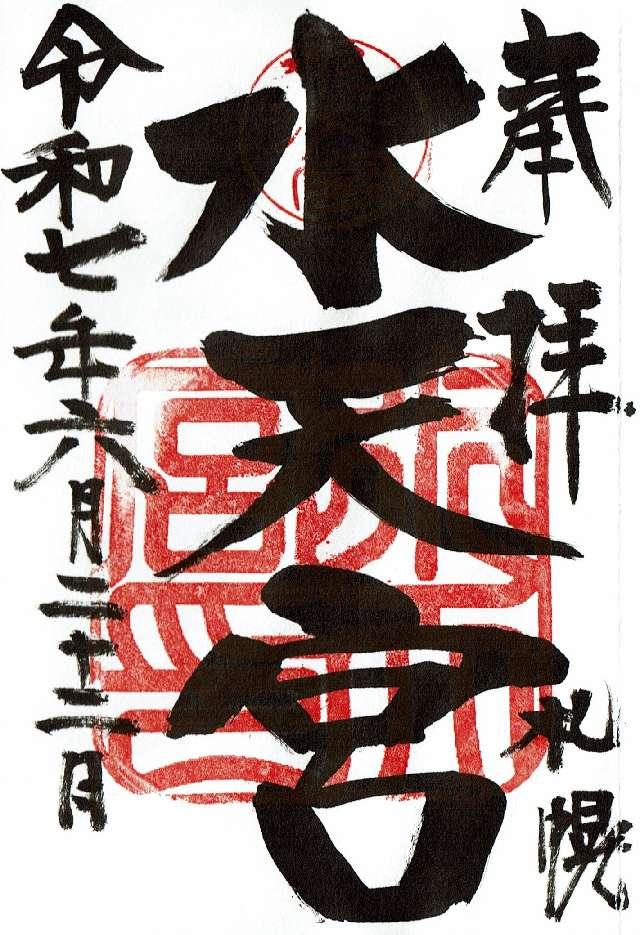 奉拝 札幌
水天宮
令和七年六月二十二日